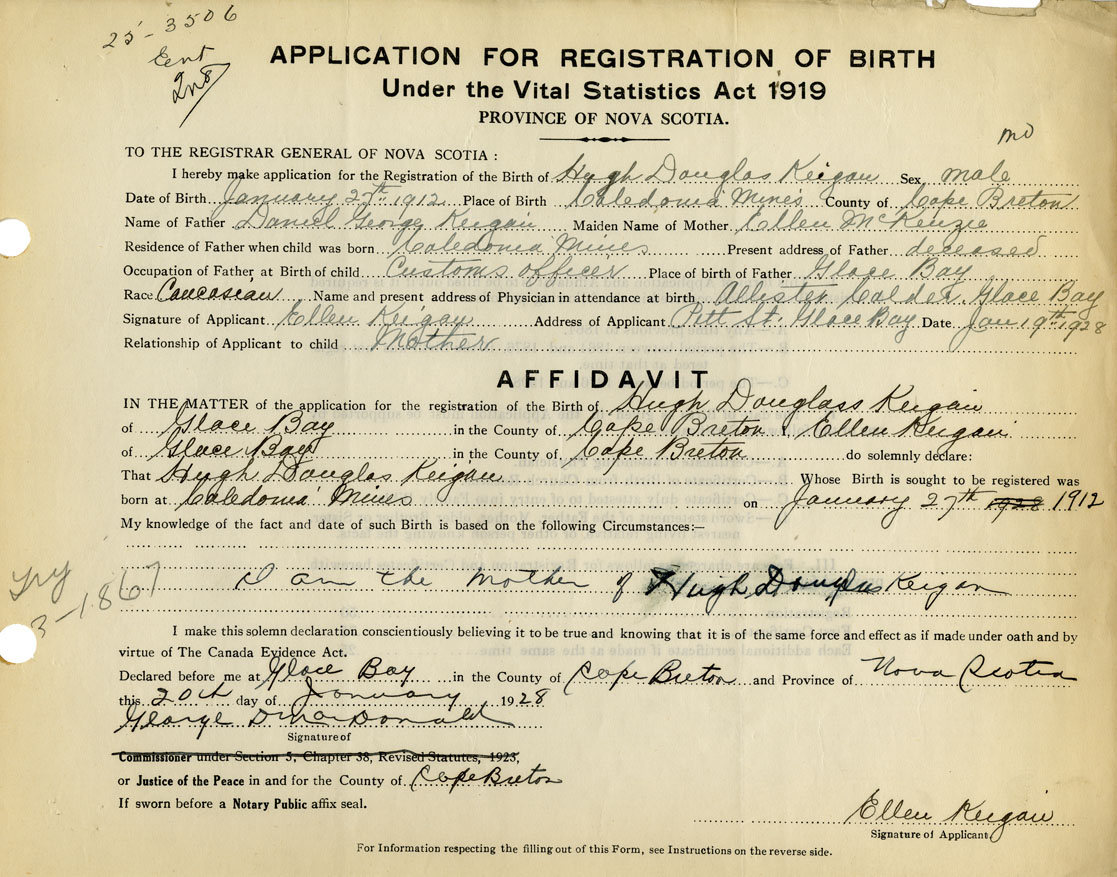 25-3506
Ent
APPLICATION FOR REGISTRATION OF BIRTH
Under the Vital Statistics Act 1919
PROVINCE OF NOVA SCOTIA.
mo
TO THE REGISTRAR GENERAL OF NOVA SCOTIA :
I hereby make application for the Registration of the Birth of Hugh Douglas Keigan Sex male
Date of Birth January 27th 1912 Place of Birth Caledonia Mines County of Cape Breton
Name of Father Daniel George Keigan Maiden Name of Mother Ellen McKenzie
Residence of Father when child was born Caledonia Mines Present address of Father deceased
Occupation of Father at Birth of child Customs officer Place of birth of Father Glace Bay
Race Caucasean Name and present address of Physician in attendance at birth, Allister Calder. Glace Bay
Signature of Applicant Ellen Keigan Address of Applicant Pitt St. Glace Bay Date Jan 19th 1928
Relationship of Applicant to child Mother
AFFIDAVIT
IN THE MATTER of the application for the registration of the Birth of Hugh Douglass Keigan
of Glace Bay in the County of Cape Breton & Ellen Keigan
of Glace Bay in the County of Cape Breton do solemnly declare:
That Hugh Douglas Keigan Whose Birth is sought to be registered was
born at Caledonia Mines on January 27th 1928 1912
My knowledge of the fact and date of such Birth is based on the following Circumstances:—
I am the Mother of Hugh Douglas Keigan
I make this solemn declaration conscientiously believing it to be true and knowing that it is of the same force and effect as if made under oath and by
virtue of The Canada Evidence Act.
Declared before me at Glace Bay in the County of Cape Breton and Province of Nova Scotia
this 20th day of January 1928
George D MacDonald
Signature of
Commissioner under Section 5, Chapter 38, Revised Statutes, 1923,
or Justice of the Peace in and for the County of Cape Breton
If sworn before a Notary Public affix seal.
Ellen Keigan
Signature of Applicant
For Information respecting the filling out of this Form, see Instructions on the reverse side.